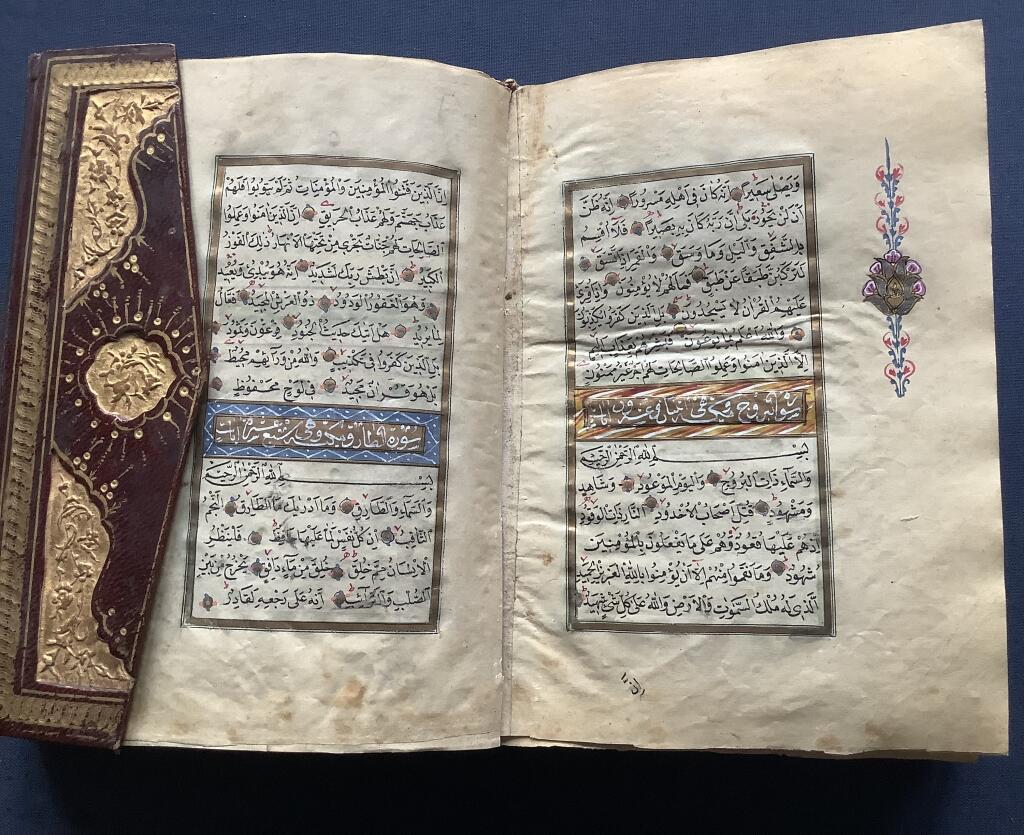 وَيَصْلَى سَعِيرًا إِنَّهُ كَانَ فِي أَهْلِهِ مَسْرُورًا إِنَّهُ ظَنَّ
أَنْ لَنْ يَحُورَ بَلَى إِنَّ رَبَّهُ كَانَ بِهِ بَصِيرًا فَلَا أُقْسِمُ
بِالشَّفَقِ وَاللَّيْلِ وَمَا وَسَقَ وَالْقَمَرِ إِذَا اتَّسَقَ
لَتَرْكَبُنَّ طَبَقًا عَنْ طَبَقٍ فَمَا لَهُمْ لَا يُؤْمِنُونَ وَإِذَا قُرِئَ
عَلَيْهِمُ الْقُرْآنُ لَا يَسْجُدُونَ بَلِ الَّذِينَ كَفَرُوا يُكَذِّبُونَ
وَاللَّهُ أَعْلَمُ بِمَا يُوعُونَ فَبَشِّرْهُمْ بِعَذَابٍ أَلِيمٍ
إِلَّا الَّذِينَ آمَنُوا وَعَمِلُوا الصَّالِحَاتِ لَهُمْ أَجْرٌ غَيْرُ مَمْنُونٍ
سورة البروج مكية وهي وعشرون آيات
بِسْمِ اللَّهِ الرَّحْمَنِ الرَّحِيمِ
وَالسَّمَاءِ ذَاتِ الْبُرُوجِ وَالْيَوْمِ الْمَوْعُودِ وَشَاهِدٍ
وَمَشْهُودٍ قُتِلَ أَصْحَابُ الْأُخْدُودِ النَّارِ ذَاتِ الْوَقُودِ
إِذْ هُمْ عَلَيْهَا قُعُودٌ وَهُمْ عَلَى مَا يَفْعَلُونَ بِالْمُؤْمِنِينَ
شُهُودٌ وَمَا نَقَمُوا مِنْهُمْ إِلَّا أَنْ يُؤْمِنُوا بِاللَّهِ الْعَزِيزِ الْحَمِيدِ
الَّذِي لَهُ مُلْكُ السَّمَوَاتِ وَالْأَرْضِ وَاللَّهُ عَلَى كُلِّ شَيْءٍ شَهِيدٌ
إِنَّ
إِنَّ الَّذِينَ فَتَنُوا الْمُؤْمِنِينَ وَالْمُؤْمِنَاتِ ثُمَّ لَمْ يَتُوبُوا فَلَهُمْ
عَذَابُ جَهَنَّمَ وَلَهُمْ عَذَابُ الْحَرِيقِ إِنَّ الَّذِينَ آمَنُوا وَعَمِلُوا
الصَّالِحَاتِ لَهُمْ جَنَّاتٌ تَجْرِي مِنْ تَحْتِهَا الْأَنْهَارُ ذَلِكَ الْفَوْزُ
الْكَبِيرُ إِنَّ بَطْشَ رَبِّكَ لَشَدِيدٌ إِنَّهُ هُوَ يُبْدِئُ وَيُعِيدُ
وَهُوَ الْغَفُورُ الْوَدُودُ ذُو الْعَرْشِ الْمَجِيدُ فَعَّالٌ
لِمَا يُرِيدُ هَلْ أَتَاكَ حَدِيثُ الْجُنُودِ فِرْعَوْنَ وَثَمُودَ
بَلِ الَّذِينَ كَفَرُوا فِي تَكْذِيبٍ وَاللَّهُ مِنْ وَرَائِهِمْ مُحِيطٌ
بَلْ هُوَ قُرْآنٌ مَجِيدٌ فِي لَوْحٍ مَحْفُوظٍ
سورة الطارق مكية وهي سبع عشرة آيات
بِسْمِ اللَّهِ الرَّحْمَنِ الرَّحِيمِ
وَالسَّمَاءِ وَالطَّارِقِ وَمَا أَدْرَيكَ مَا الطَّارِقُ النَّجْمُ
الثَّاقِبُ إِنْ كُلُّ نَفْسٍ لَمَّا عَلَيْهَا حَافِظٌ فَلْيَنْظُرِ
الْإِنْسَانُ مِمَّ خُلِقَ خُلِقَ مِنْ مَاءٍ دَافِقٍ يَخْرُجُ مِنْ بَيْنِ
الصُّلْبِ وَالتَّرَائِبِ إِنَّهُ عَلَى رَجْعِهِ لَقَادِرٌ